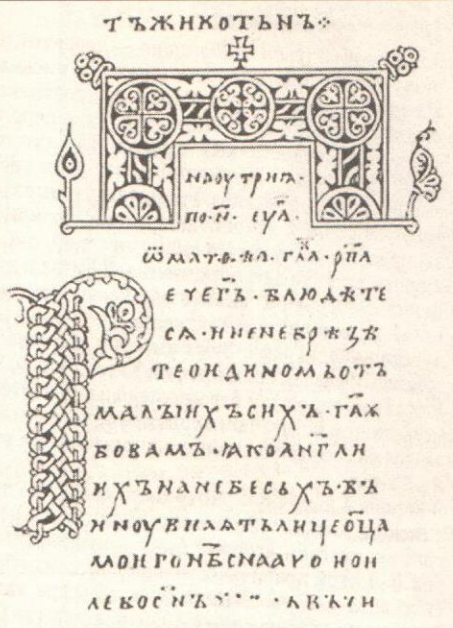 ТЪЖИКОТЬНЪ⁘
НАОУТРИꙖ·
ПО·Н҃· ЕУА҃·
ѾМАТѲ·ѢА· ГЛ҃А· РП҃А
РЕУЕГ҃Ь·БЛЮДѢТЕ
СА·НИЕНЕБРѢЗѢ
ТЕОИДИНОМЬОТЪ
МАЛЪІИХЪСИХЪ·ГЛ҃Ѫ
БОВАМЪ·ꙖКОАНГ҃ЛИ
ИХЪНАНЕБЕСЬХЪ·ВЪ
ИНОУВИДѦТЪЛИЦЕО҃ЦА
МОИГОНБ҃СНААУОИОИ